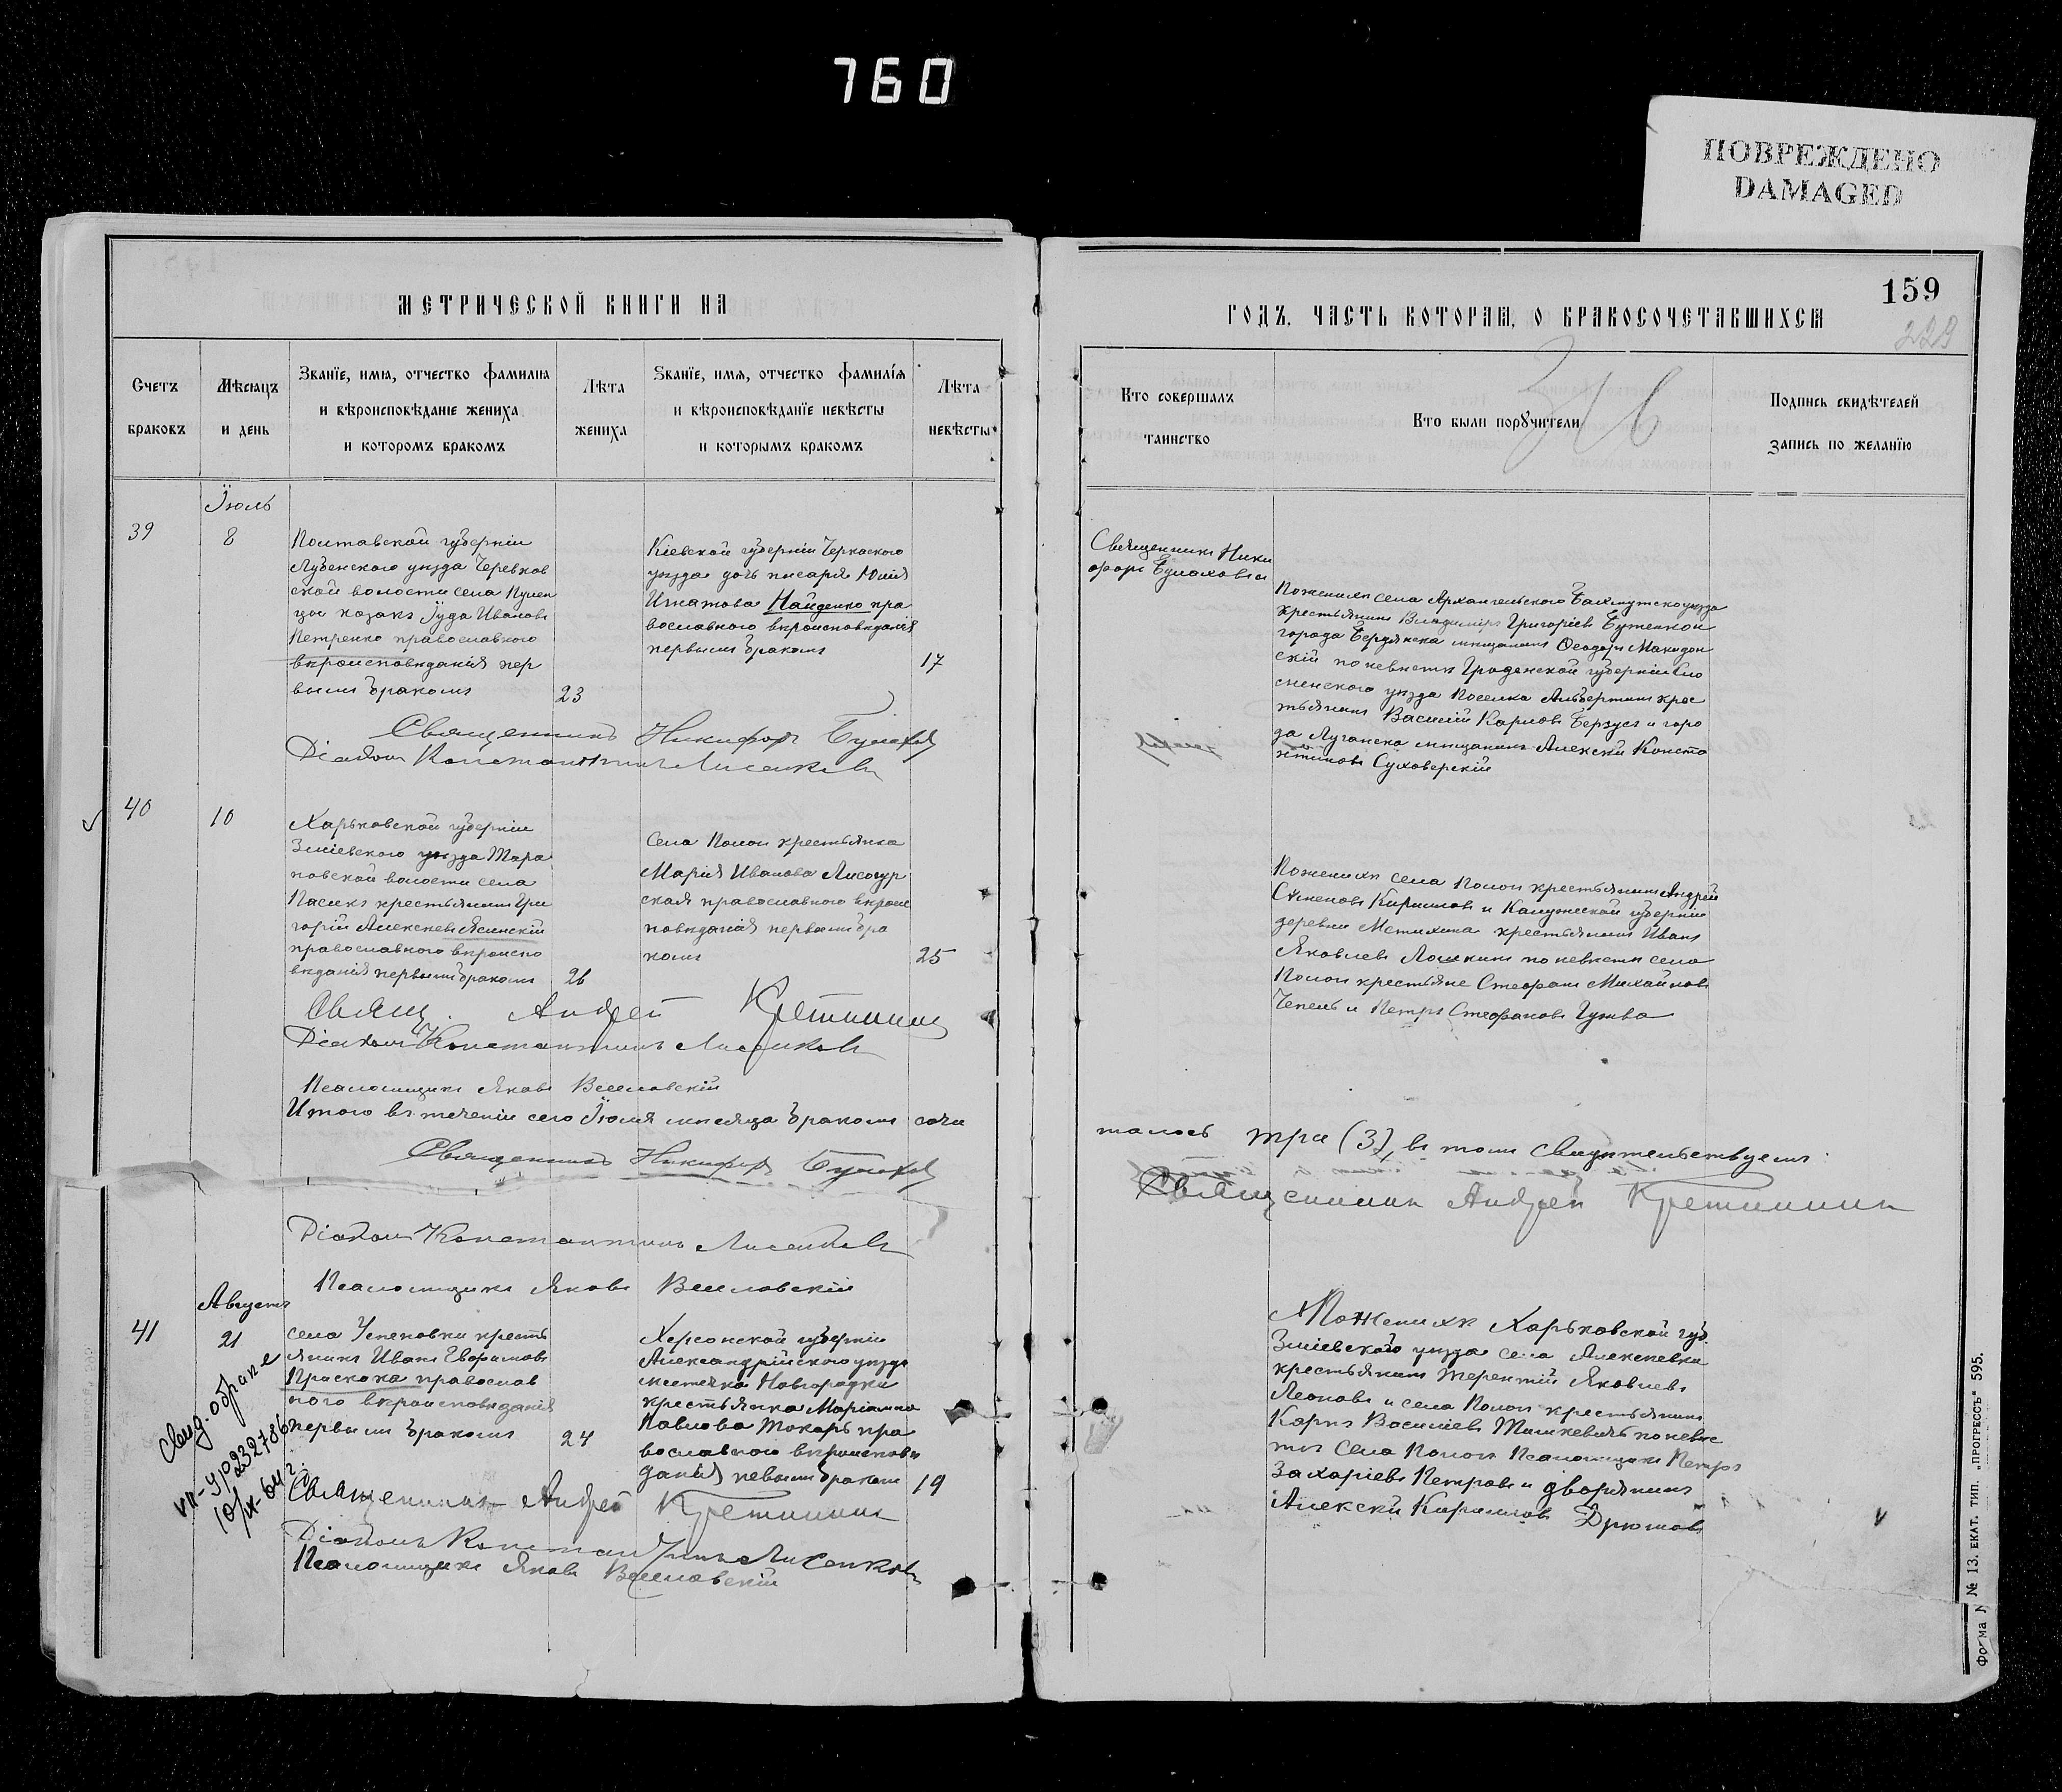 760
ПОВРЕЖДЕНО
DAMAGED
МЕТРИЧЕСКОЙ КНИГИ НА
ГОДЪ, ЧАСТЬ КОТОРАЯ, О БРАКОСОЧЕТАВШИХСЯ
159
229
Счетъ
браковъ
Мѣсяцъ
и день
Званїе, имя, отчество фамилїя
и вѣроисповѣданїе жениха
и которомъ бракомъ
Лѣта
жениха
Званїе, имя, отчество фамилїя
и вѣроисповѣданїе невѣсты
и которымъ бракомъ
Лѣта
невѣсты
Кто совершалъ
таинство
Кто были порꙋчители
Подпись свидѣтелей
запись по желанїю
Іюль
39
8
Полтавской губерніи
Лубенскаго уѣзда Черевков
ской волости села
козакъ Іуда Ивановъ
Петренко православнаго
вѣроисповѣданія пер
вымъ бракомъ
23
Кіевской губерніи Черкаскаго
уѣзда дочь писаря Юлія
Игнатова Найденко пра
вославнаго вѣроисповѣданія
первымъ бракомъ
17
Священникъ Ники
форъ
По женихѣ села Архангельскаго Бахмутскаго уѣзда
крестьянинъ Владиміръ Григоріевъ
города Бердянска мѣщанинъ Ѳеодоръ Македон
скій по невѣстѣ Гродненской губерніи Сло
нимскаго уѣзда поселка Альбертинъ крес
тьянинъ Василій Карловъ и горо
да Луганска мѣщанинъ Алексѣй Конста
нтиновъ Суховерскій
Священникъ Никифоръ
Діаконъ Константинъ Лисенковъ
40
10
Харьковской губерніи
Зміевскаго уѣзда Тара
новской волости села
Пасики крестьянинъ Гри
горій Алексѣевъ Ясинскій
православнаго вѣроиспо
вѣданія первымъ бракомъ
26
Села Попои крестьянка
Марія Иванова Лисогур
ская православнаго вѣроис
повѣданія первымъ бра
комъ
25
По женихѣ села Попои крестьянинъ Андрей
Степановъ Кириловъ и Калужской губерніи
деревни крестьянинъ Иванъ
Яковлевъ по невѣстѣ села
Попои крестьяне Стефанъ Михайловъ
Чепель и Петръ Стефановъ Гужва
Свящ. Андрей Кретининъ
Діаконъ Константинъ Лисенковъ
Псаломщикъ Яковъ Веселовскій
Итого въ теченіи сего Іюля мѣсяца бракомъ соче
талось три (3), въ томъ свидѣтельствуемъ:
Священникъ Никифоръ
Священникъ Андрей Кретининъ
Діаконъ Константинъ Лисенковъ
Псаломщикъ Яковъ Веселовскій
Августъ
41
21
Села Успеновки кресть
янинъ Иванъ Евфимовъ
православ
наго вѣроисповѣданія
первымъ бракомъ
24
Херсонской губерніи
Александрійскаго уѣзда
мѣстечка Новгородки
крестьянка Маріамна
Павлова Токарь пра
вославнаго вѣроисповѣ
данія певымъ бракомъ
19
По женихѣ Харьковской губ.
Зміевскаго уѣзда села Алексѣевки
крестьянинъ Терентій Яковлевъ
Леоновъ и села Попои крестьянинъ
Карпъ Василіевъ Тишкевичъ по невѣс
тѣ села Попои Псаломщикъ Петръ
Захаріевъ Петровъ и дворянинъ
Алексѣй Кириловъ Дрюковъ
Свид. о браке
VII-УР 232786
10/IX-64 г.
Священникъ Андрей Кретининъ
Діаконъ Константинъ Лисенковъ
Псаломщикъ Яковъ Веселовскій
№ 13. ЕКАТ. ТИП. „ПРОГРЕССЪ" 595.
Форма №